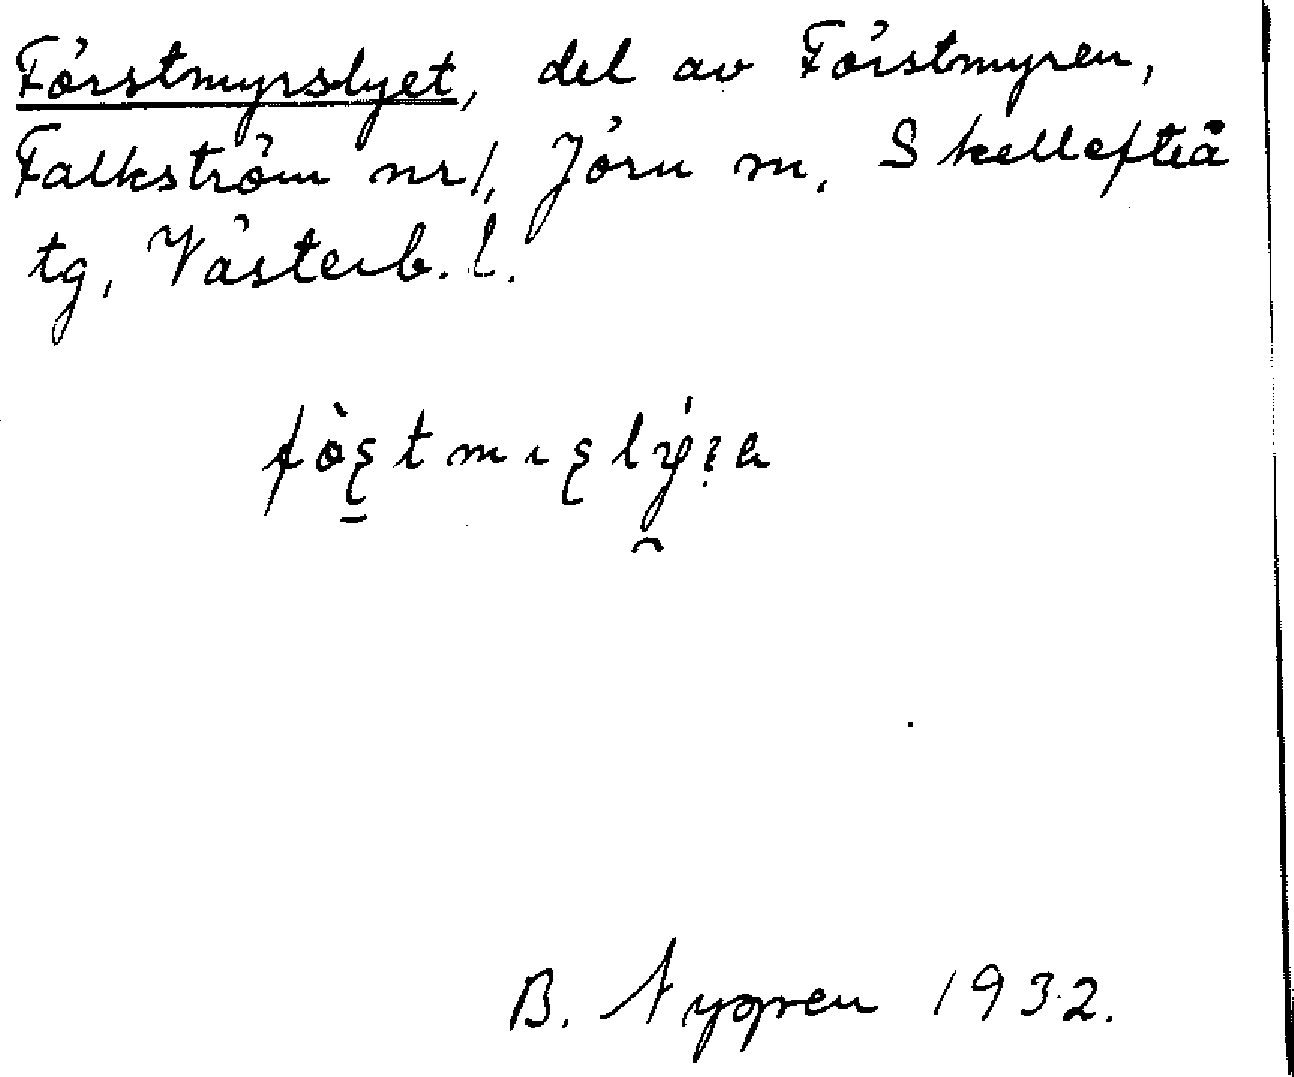 Förstmyrslyet, del av Förstmyren,
Falkström nr 1, Jörn m, Skellefteå
tg, Västerb. l.
B. Nygren 1932.